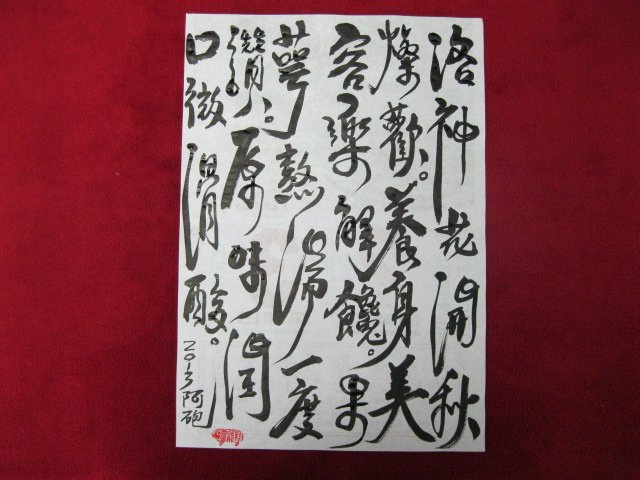 洛神花開秋
燦歡。養身美
容樂解饞。果
萼熬一度
讚。原味潤
口微酸。
2013阿砲